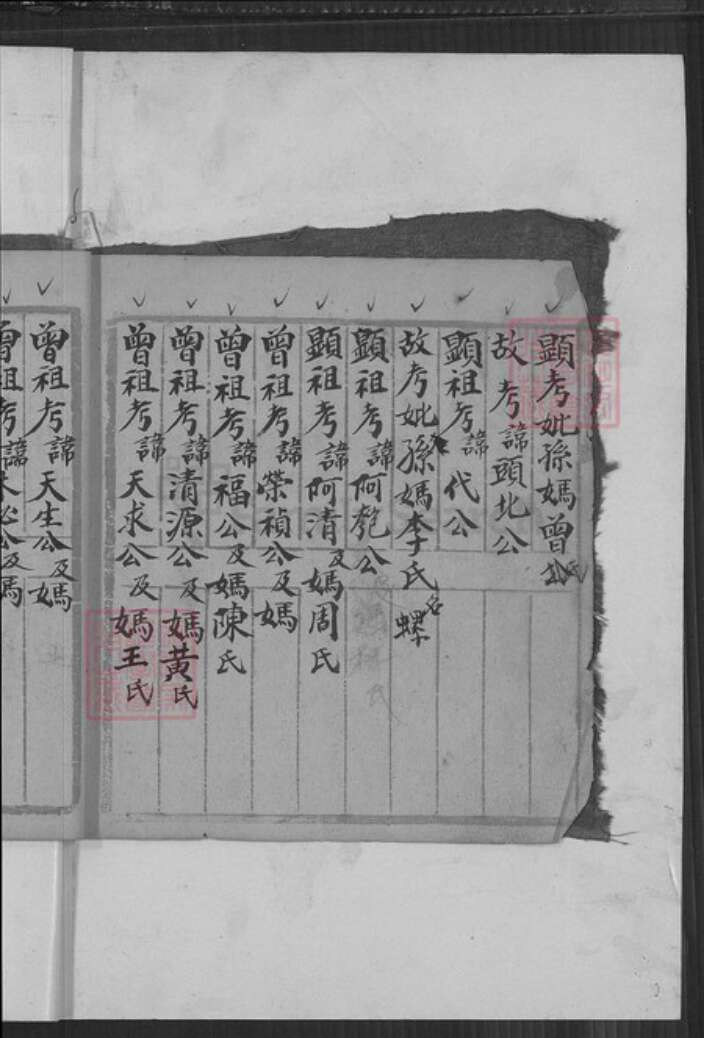 顯考妣孫媽曾氏
故考諱頭北公
顯祖考諱代公
故考妣孫媽李氏名螺
顯祖考諱阿匏公
顯祖考諱阿清公及媽周氏
曾祖考諱榮禎公及媽
曾祖考諱福公及媽陳氏
曾祖考諱清源公及媽黃氏
曾祖考諱天求公及媽王氏
曾祖考諱天生公及媽
曾祖考諱 公及媽